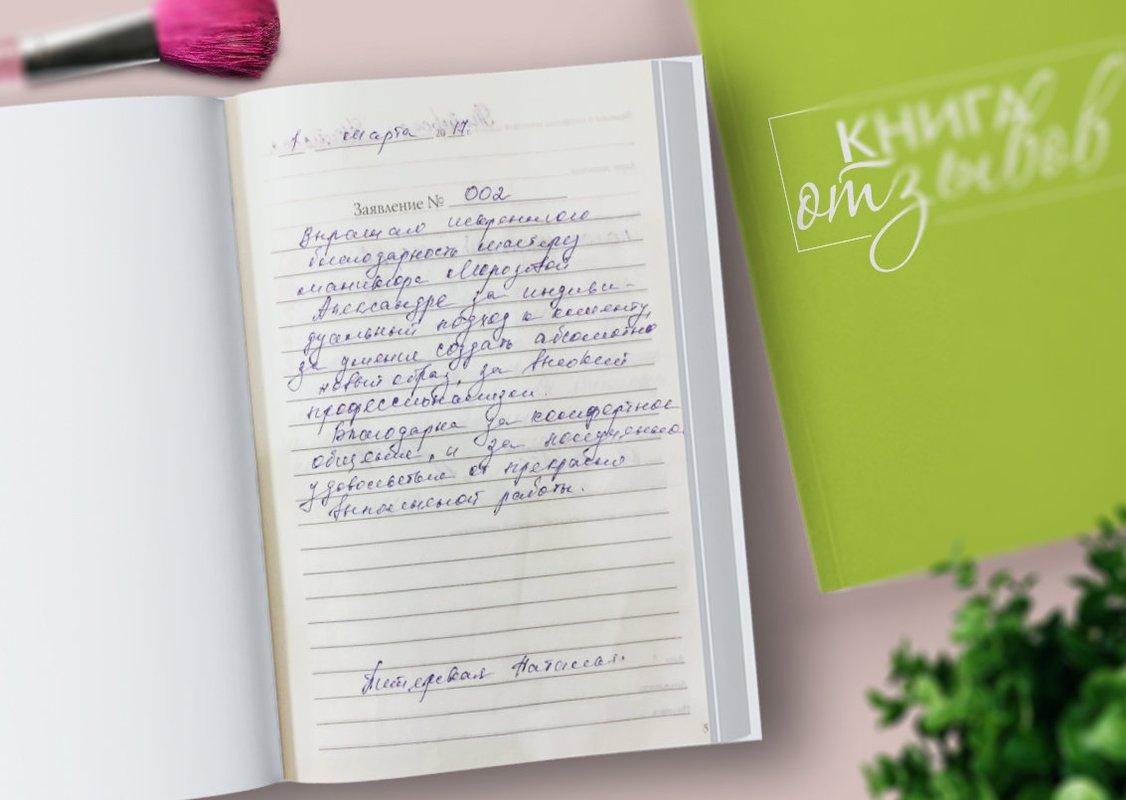 1 марта 2017г.
Заявление № 002
Выражаю искреннюю
благодарность мастеру
маникюра Морозовой
Александре за индиви-
дуальный подход к клиенту,
за умение создать абсолютно
новый образ, за высокий
профессионализм.
Благодарна за комфортное
общение, и за полученное
удовольствие от прекрасно
выполненной работы.
Наталья.
5
КНИГА
отзывов